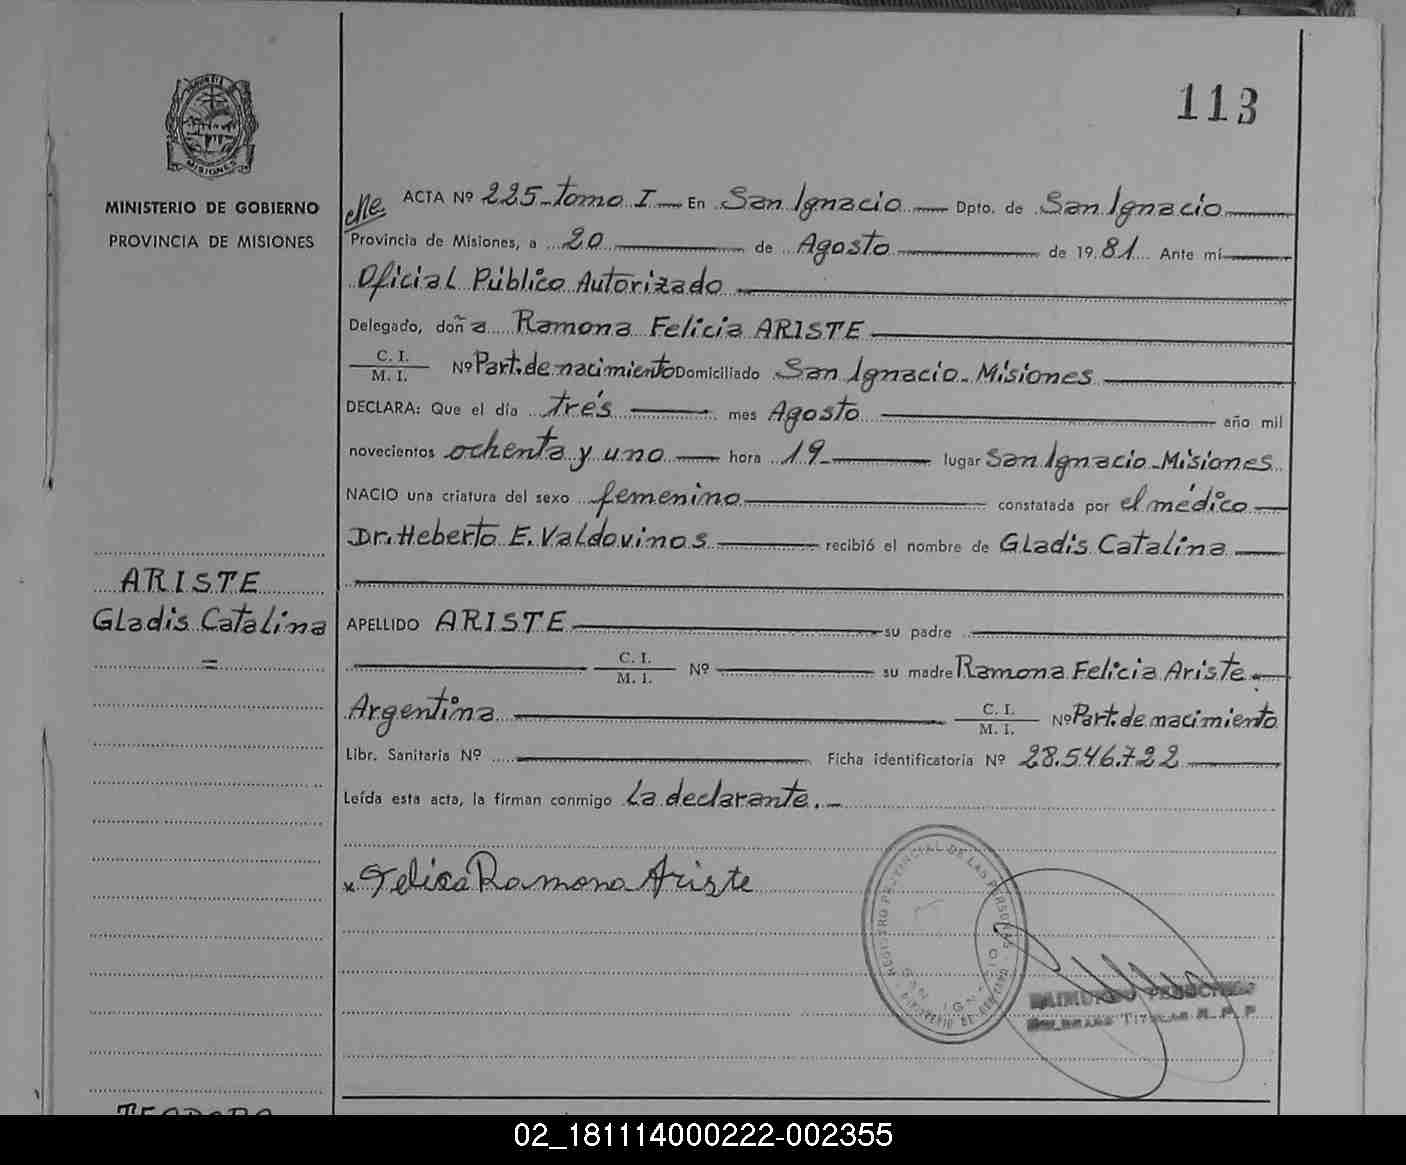 113
MISIONES
MINISTERIO DE GOBIERNO
PROVINCIA DE MISIONES
ARISTE
Gladis Catalina
=
ACTA Nº 225-tomo I En San Ignacio Dpto. de San Ignacio
Provincia de Misiones, a 20 de Agosto de 1981 Ante mí
Oficial Público Autorizado
Delegado, doña Ramona Felicia ARISTE
C. I.
M. I. Nº Part. de nacimiento Domiciliado San Ignacio - Misiones
DECLARA: Que el día trés mes Agosto año mil
novecientos ochenta y uno hora 19- lugar San Ignacio - Misiones
NACIO una criatura del sexo femenino constatada por el médico
Dr. Heberto E. Valdovinos recibió el nombre de Gladis Catalina
APELLIDO ARISTE su padre
C. I.
M. I. Nº su madre Ramona Felicia Ariste
Argentina C. I.
M. I. Nº Part. de nacimiento
Libr. Sanitaria Nº Ficha identificatoria Nº 28.546.722
Leída esta acta, la firman conmigo la declarante.-
x Felisa Ramona Ariste
REGISTRO PROVINCIAL DE LAS PERSONAS
SAN IGNACIO
TITULAR R. P. P.
02_181114000222-002355